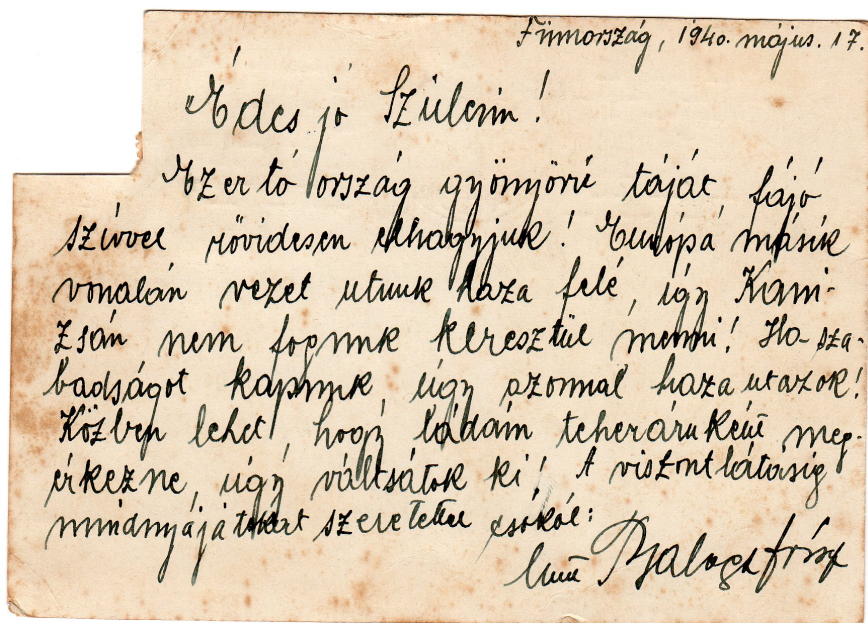 Finnország, 1940. május. 17.
Édes jó Szüleim!
Ezer tó ország gyönyörű táját fájó
szívvel rövidesen elhagyjuk! Európa másik
vonalán vezet utunk haza felé, úgy Kani-
zsán nem fogunk keresztül menni! Ha sza-
badságot kapunk, úgy azonnal haza utazok!
Közben lehet, hogy ládám teheráruként meg-
érkezne, úgy váltsátok ki! A viszontlátásig
mindnyájatokat szeretettel csókol:
Balogh